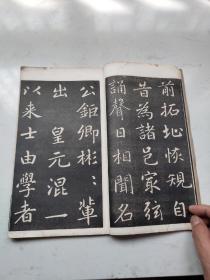 前拓址恢規自
昔為諸邑家弦
誦聲日相聞名
公鉅卿彬〻輩
出　皇元混一
以来士由學者